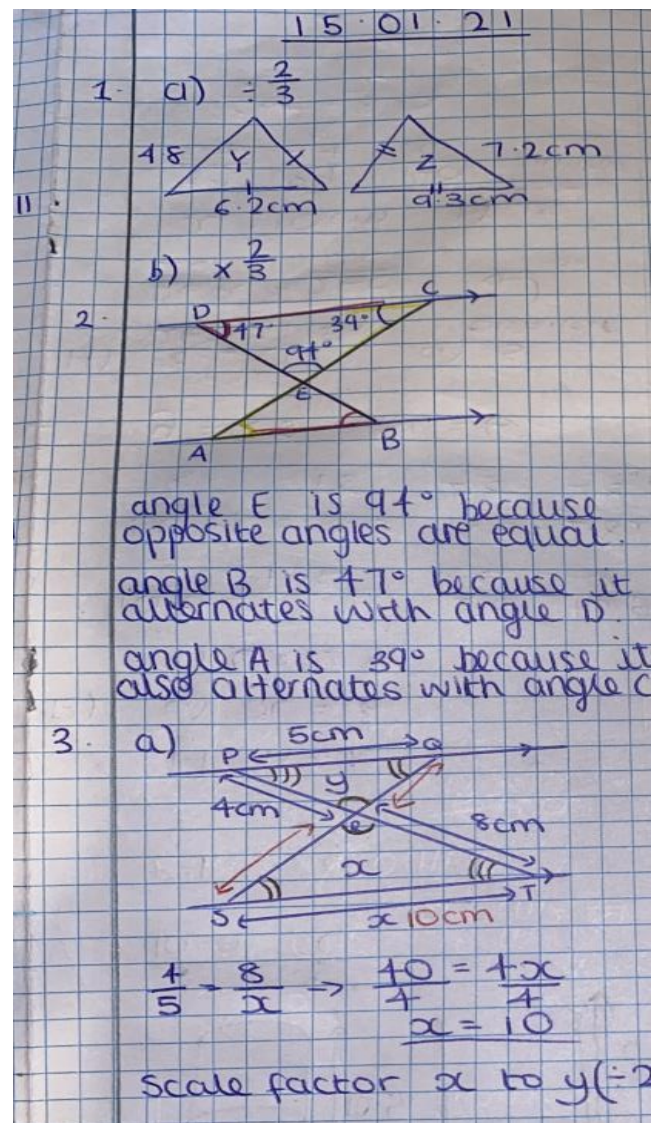 15.01.21
1. a) ÷ 2/3
48 Y 6.2cm Z 7.2cm 9.3cm
11
b) × 2/3
2.
D C
47° 39°
94°
E
A B
angle E is 94° because
opposite angles are equal.
angle B is 47° because it
alternates with angle D.
angle A is 39° because it
also alternates with angle C
3. a)
5cm
P Q
y
4cm e 8cm
x
S T
x 10cm
4/5 = 8/x → 40/4 = 4x/4
x = 10
scale factor x to y (÷2